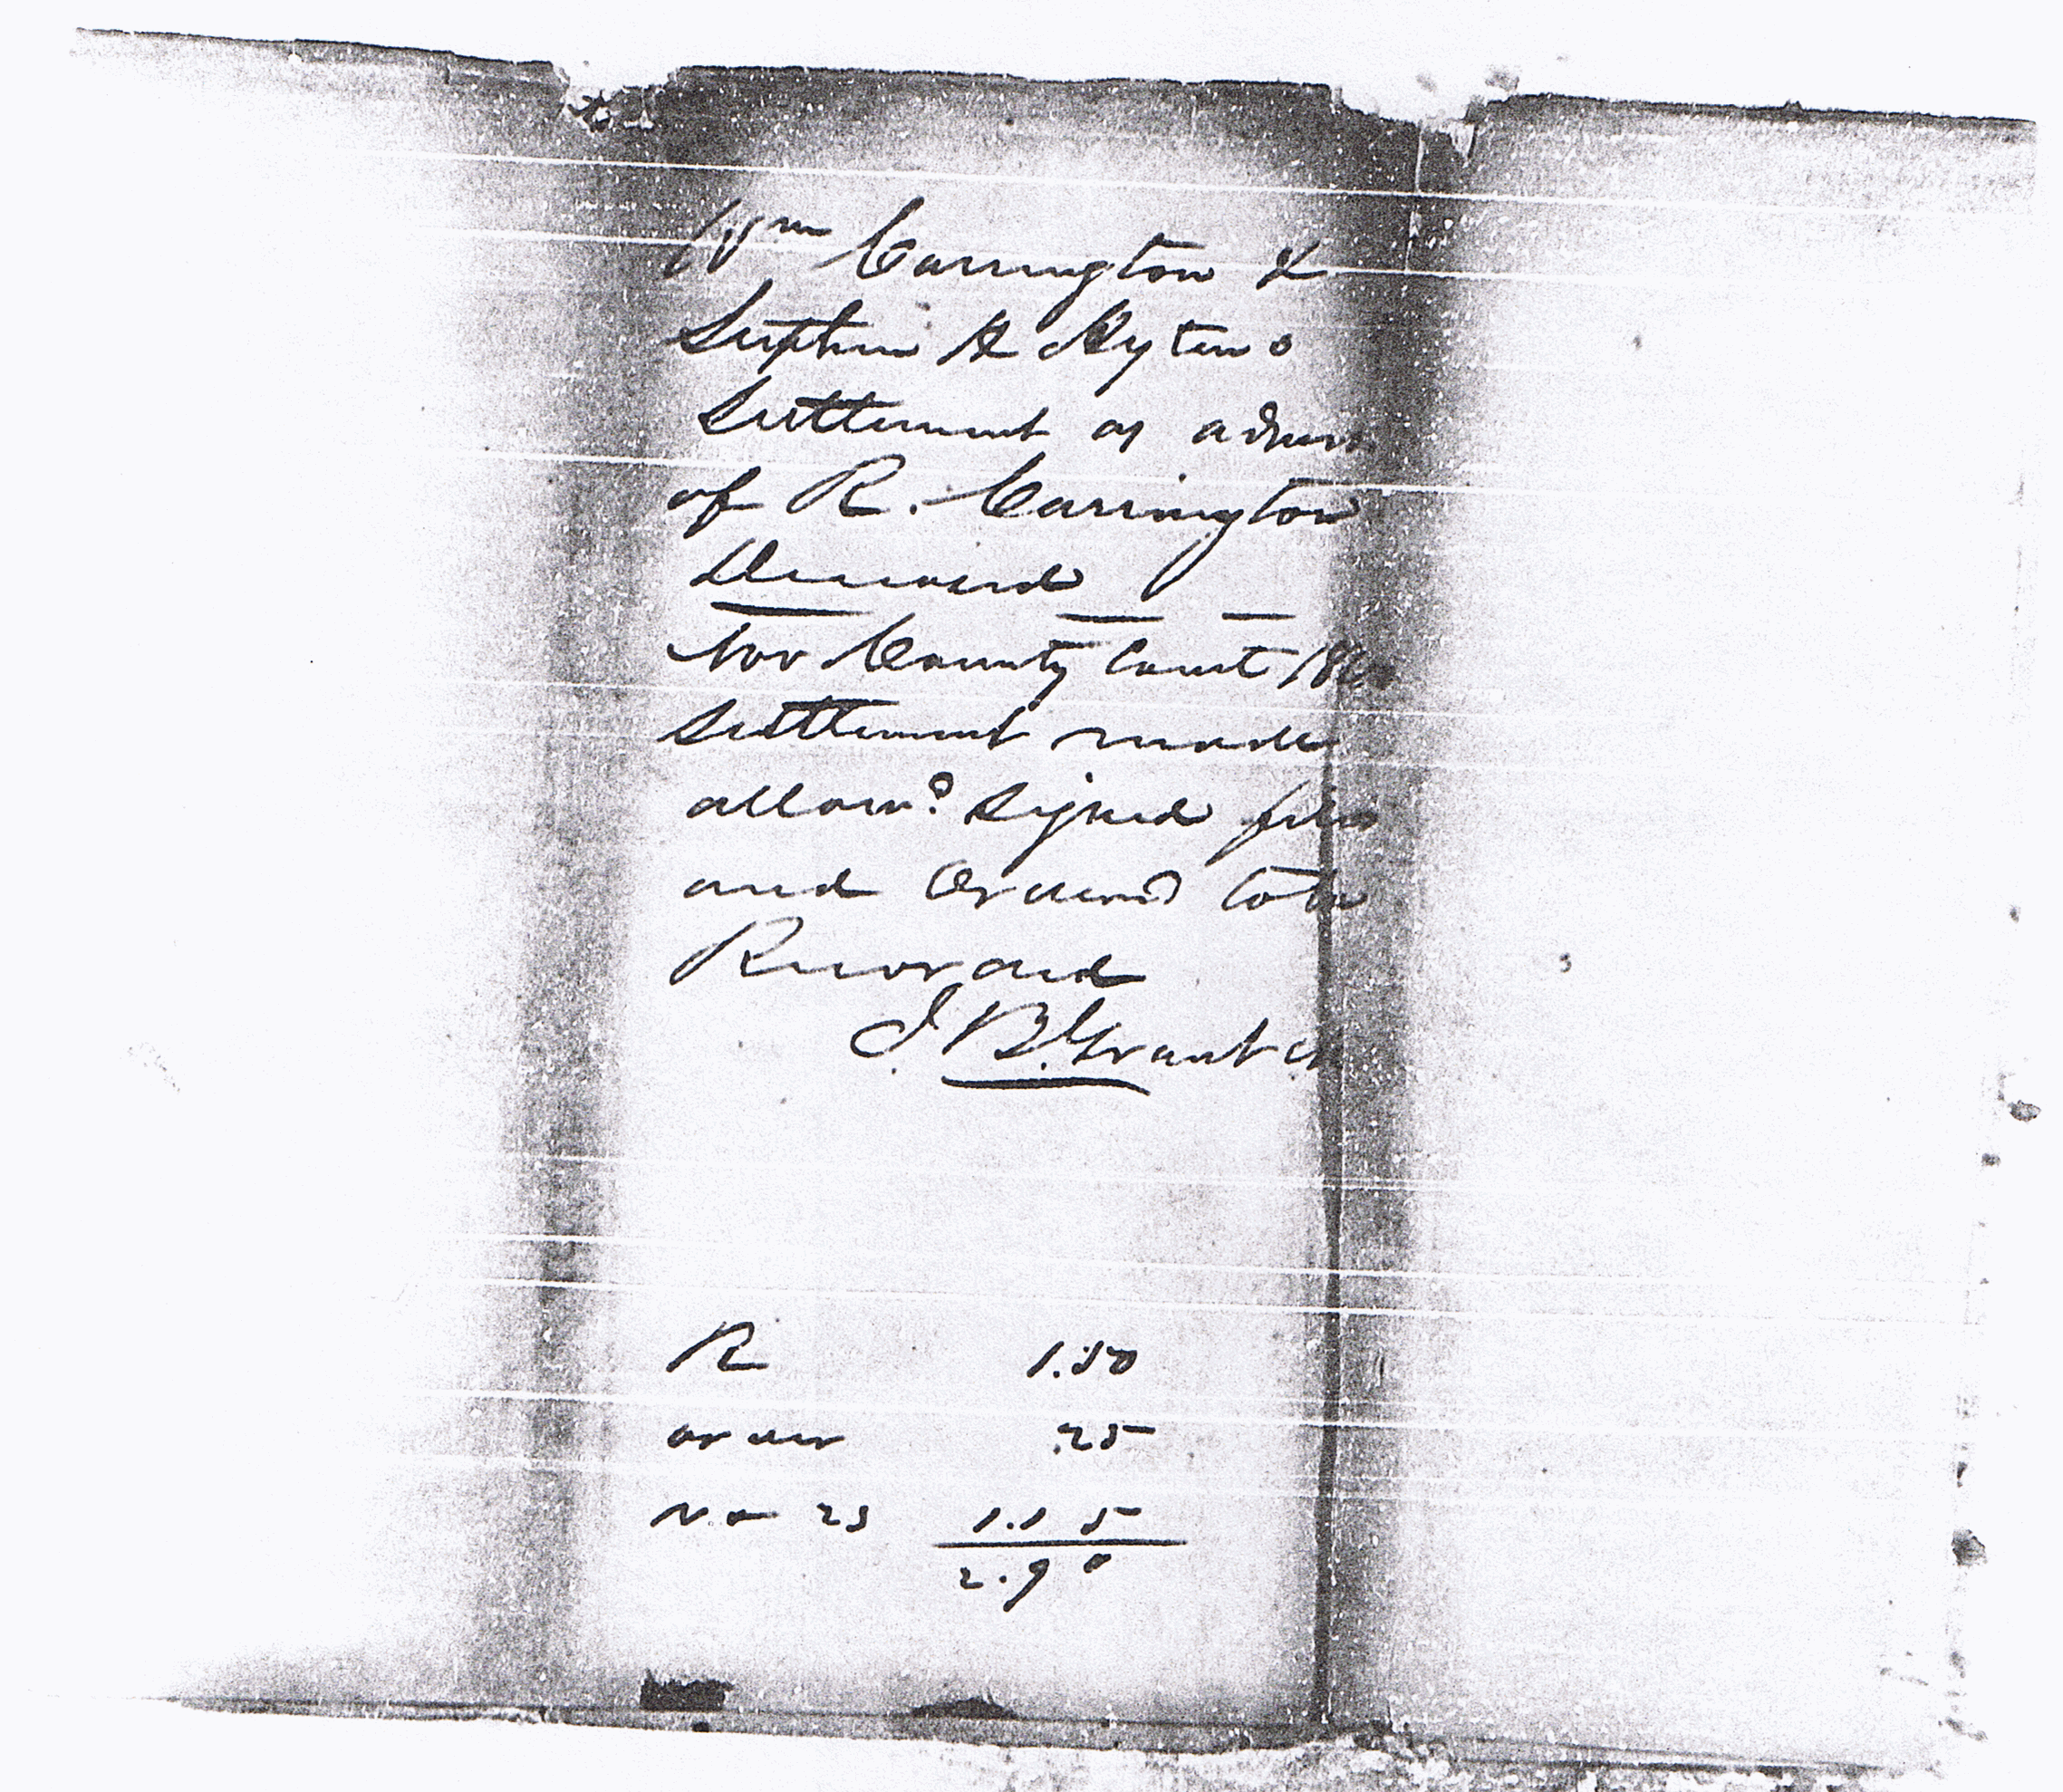 Wm Carrington &
Stephen H Hytens
Settlement as admrs
of R. Carrington
Deceased
Nov County Court
Settlement made
allowd signed filed
and Ordered to be
Recorded
J. B. Grant
R 1.50
order .25
23 1.15
2.90